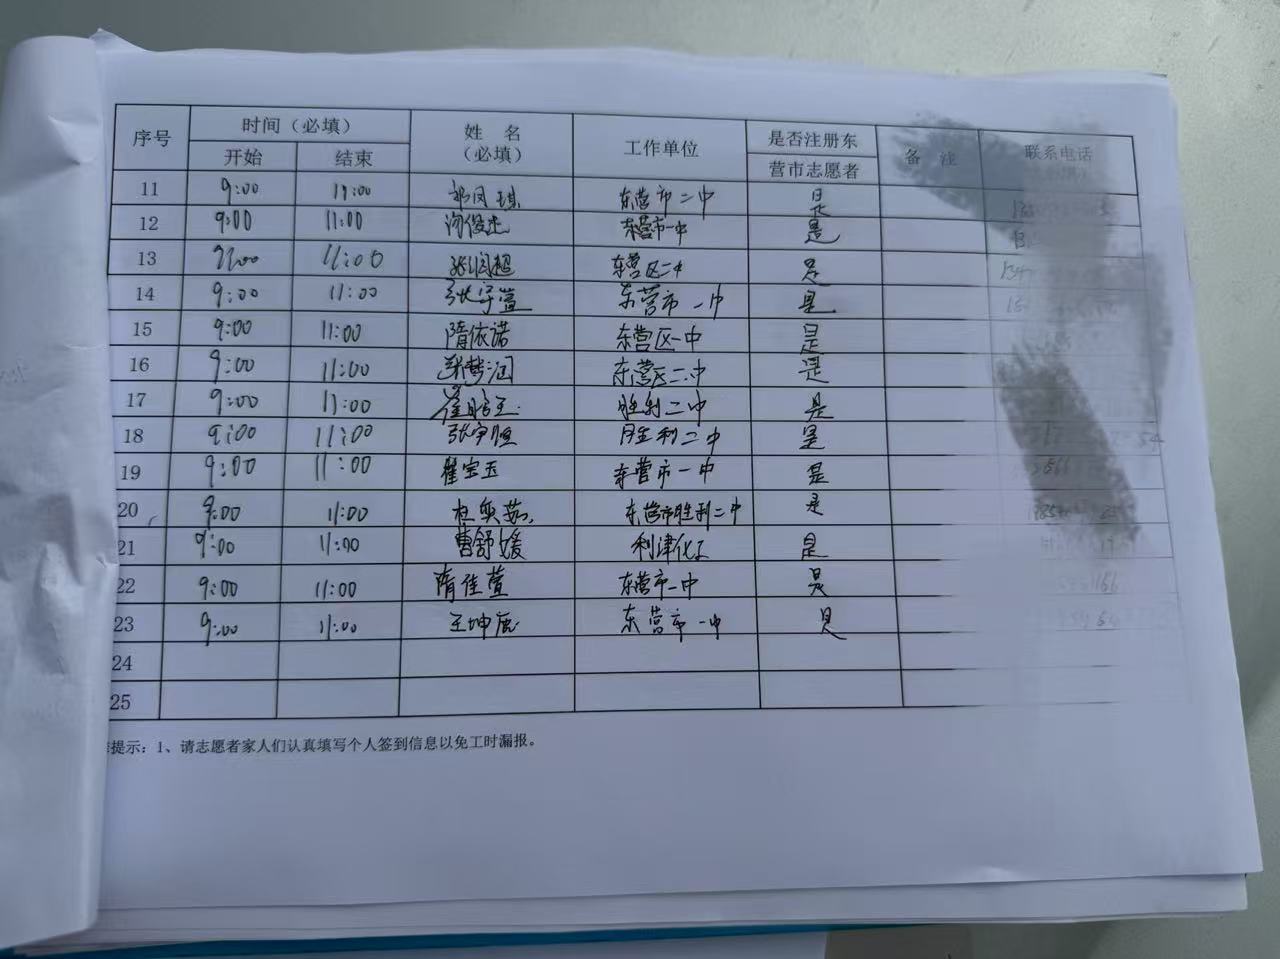 序号 时间（必填） 姓 名（必填） 工作单位 是否注册东营市志愿者 备 注 联系电话
开始 结束
11 9:00 11:00 东营市二中 是
12 9:00 11:00 东营市一中 是
13 9:00 11:00 张润超 东营区二中 是
14 9:00 11:00 张宇萱 东营市一中 是
15 9:00 11:00 隋依诺 东营区一中 是
16 9:00 11:00 张梦涵 东营区二中 是
17 9:00 11:00 胜利二中 是
18 9:00 11:00 张宇恒 胜利二中 是
19 9:00 11:00 翟宝玉 东营市一中 是
20 9:00 11:00 杜奕茹 东营市胜利二中 是
21 9:00 11:00 曹舒媛 利津化工 是
22 9:00 11:00 隋佳萱 东营市一中 是
23 9:00 11:00 王坤宸 东营市一中 是
24
25
提示：1、请志愿者家人们认真填写个人签到信息以免工时漏报。